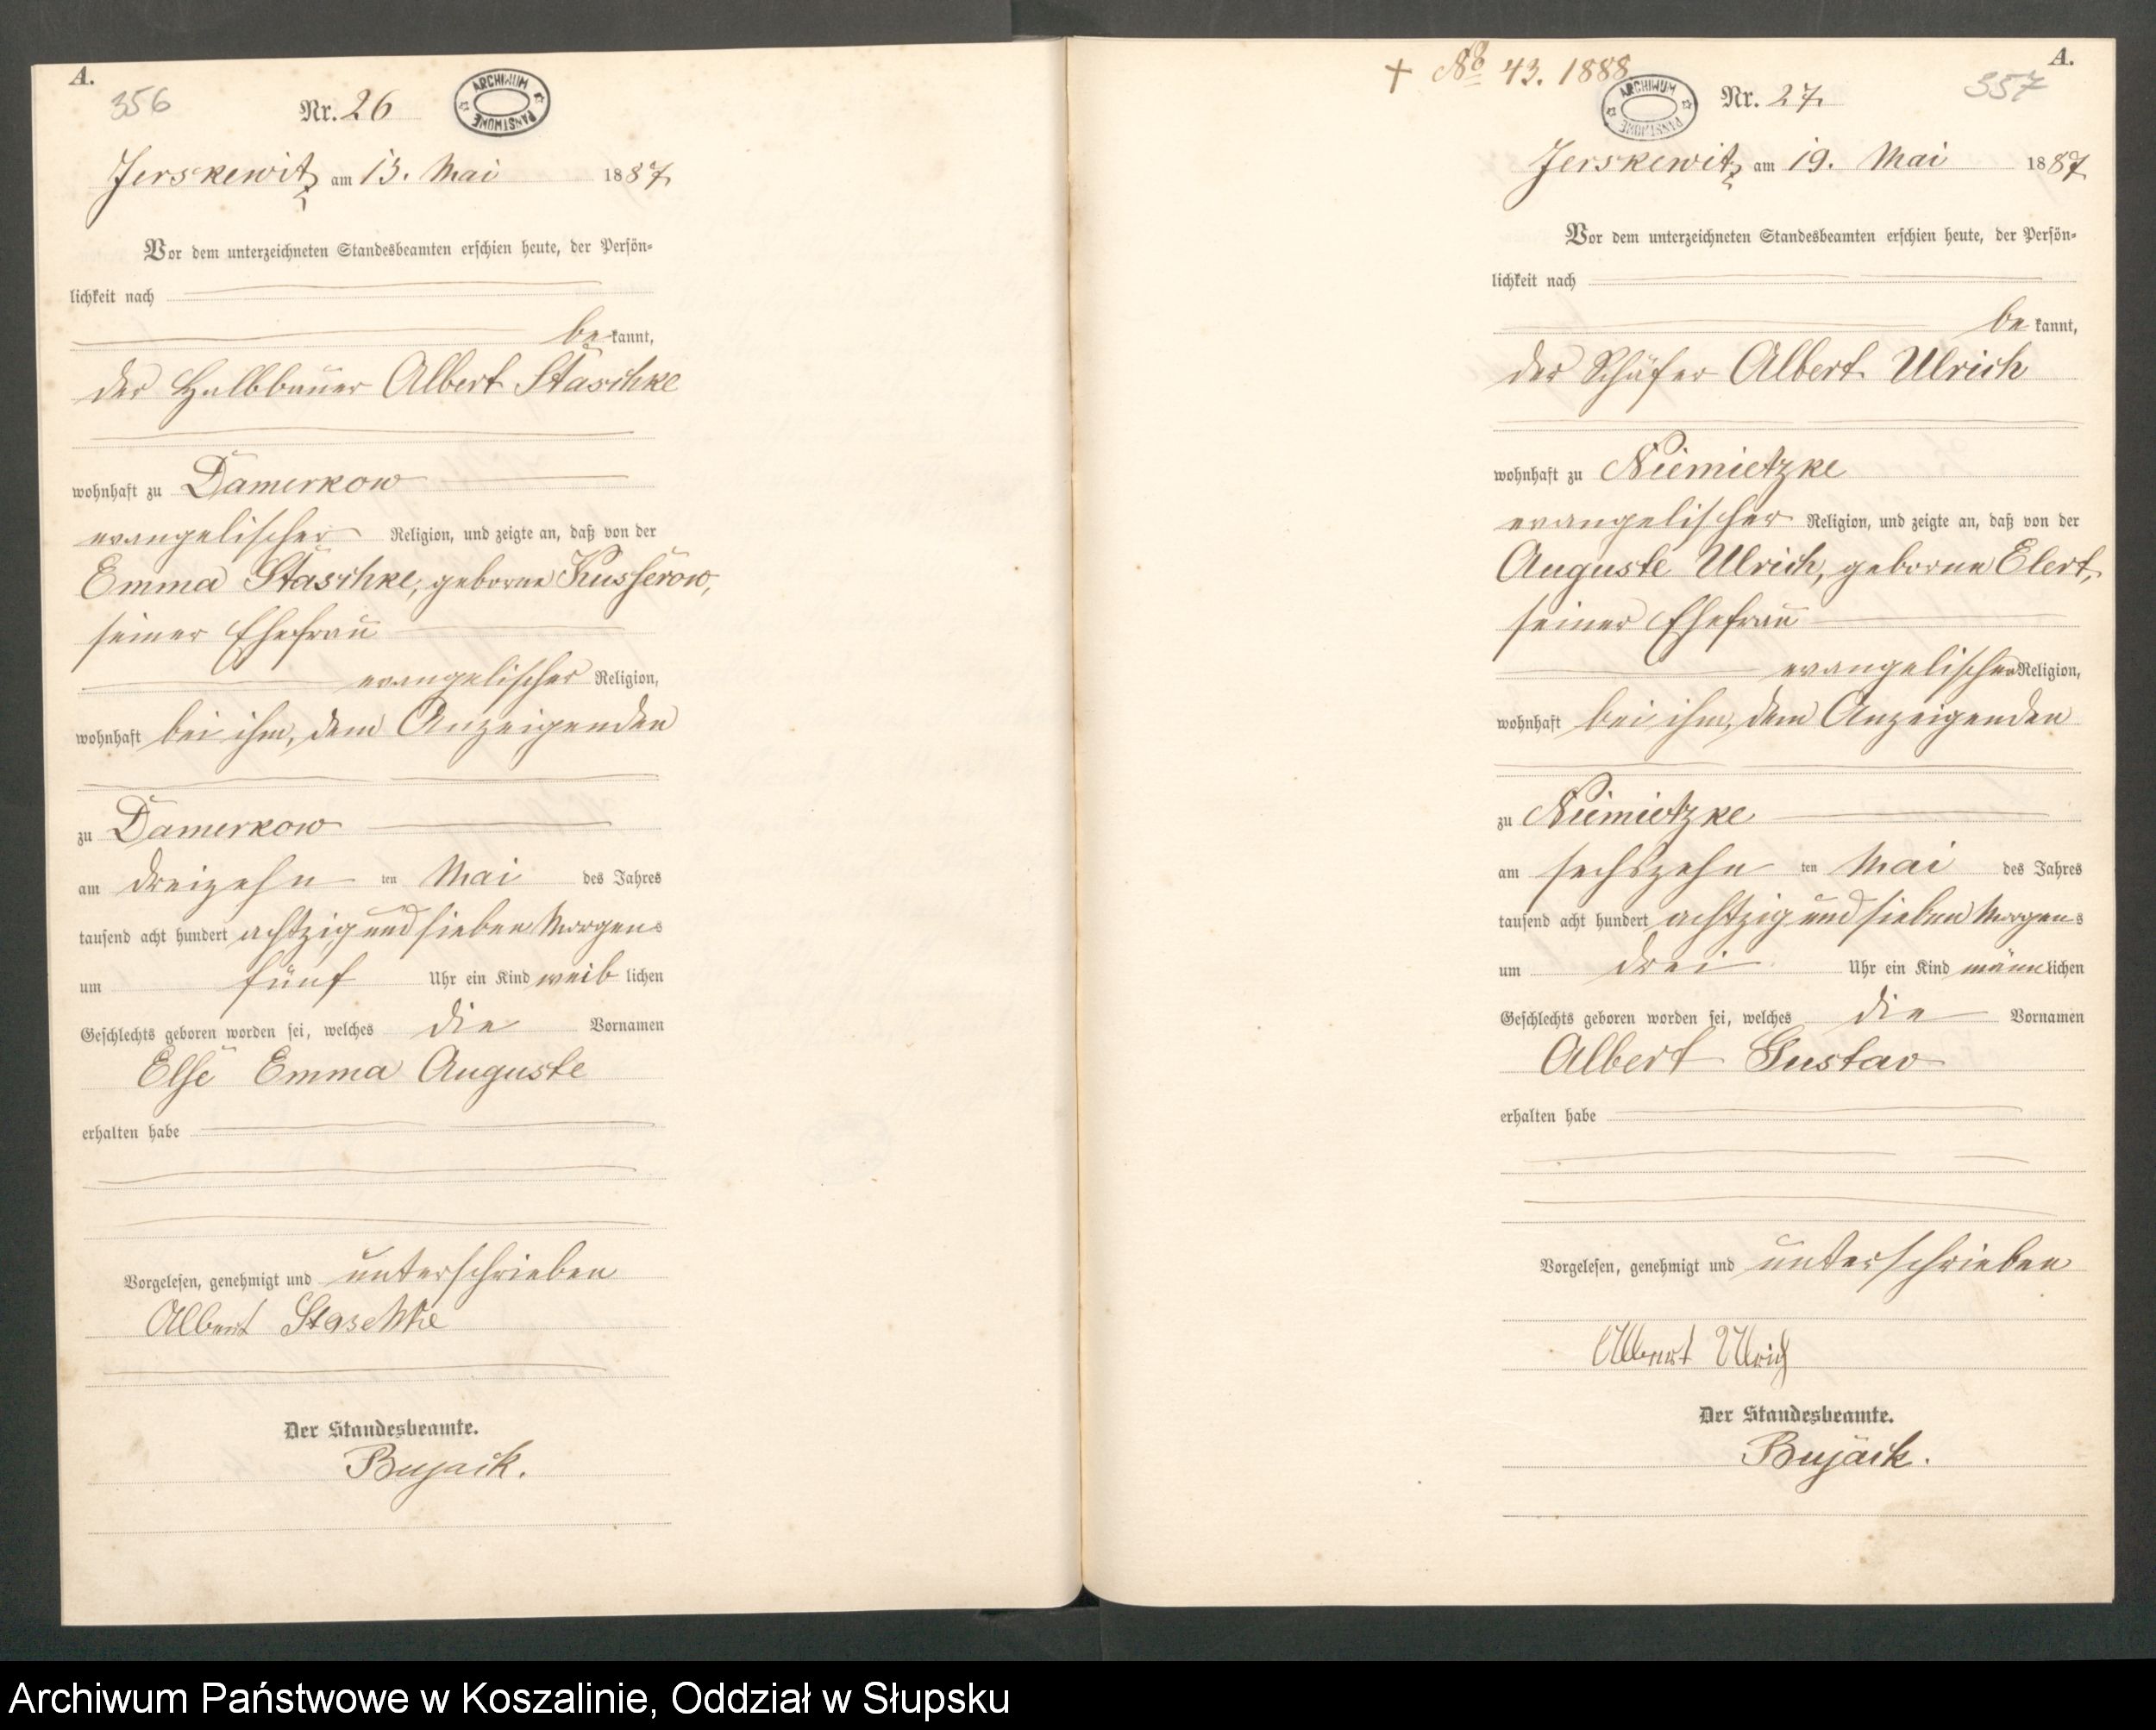 A.
356
Nr. 26
ARCHIWUM PAŃSTWOWE
Jerskewitz am 13. Mai 1887
Vor dem unterzeichneten Standesbeamten erschien heute, der Persön-
lichkeit nach
be kannt,
der Halbbauer Albert Staschke
wohnhaft zu Damerkow
evangelischer Religion, und zeigte an, daß von der
Emma Staschke, geborne Kusserow,
seiner Ehefrau
evangelischer Religion,
wohnhaft bei ihm, dem Anzeigenden
zu Damerkow
am dreizehn ten Mai des Jahres
tausend acht hundert achtzig und sieben Morgens
um fünf Uhr ein Kind weib lichen
Geschlechts geboren worden sei, welches die Vornamen
Else Emma Auguste
erhalten habe
Vorgelesen, genehmigt und unterschrieben
Albert Staschke
Der Standesbeamte.
Bujack.
+ No 43. 1888
A.
357
ARCHIWUM PAŃSTWOWE
Nr. 27
Jerskewitz am 19. Mai 1887
Vor dem unterzeichneten Standesbeamten erschien heute, der Persön-
lichkeit nach
be kannt,
der Schäfer Albert Ulrich
wohnhaft zu Niemietzke
evangelischer Religion, und zeigte an, daß von der
Auguste Ulrich, geborne Elert,
seiner Ehefrau
evangelischer Religion,
wohnhaft bei ihm, dem Anzeigenden
zu Niemietzke
am sechszehn ten Mai des Jahres
tausend acht hundert achtzig und sieben Morgens
um drei Uhr ein Kind männ lichen
Geschlechts geboren worden sei, welches die Vornamen
Albert Gustav
erhalten habe
Vorgelesen, genehmigt und unterschrieben
Albert Ulrich
Der Standesbeamte.
Bujack.
Archiwum Państwowe w Koszalinie, Oddział w Słupsku